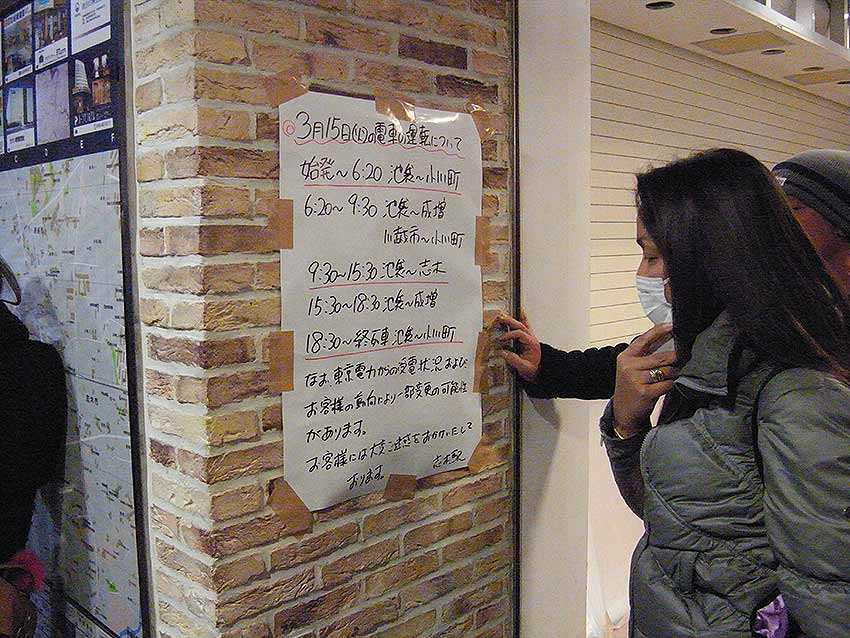 ◎3月15日(火)の電車の運転について
始発〜6:20 池袋〜小川町
6:20〜9:30 池袋〜成増
川越市〜小川町
9:30〜15:30 池袋〜志木
15:30〜18:30 池袋〜成増
18:30〜終電車 池袋〜小川町
なお、東京電力からの受電状況および
お客様の動向により一部変更の可能性
があります。
お客様には大変ご迷惑をおかけいたして
おります。 志木駅